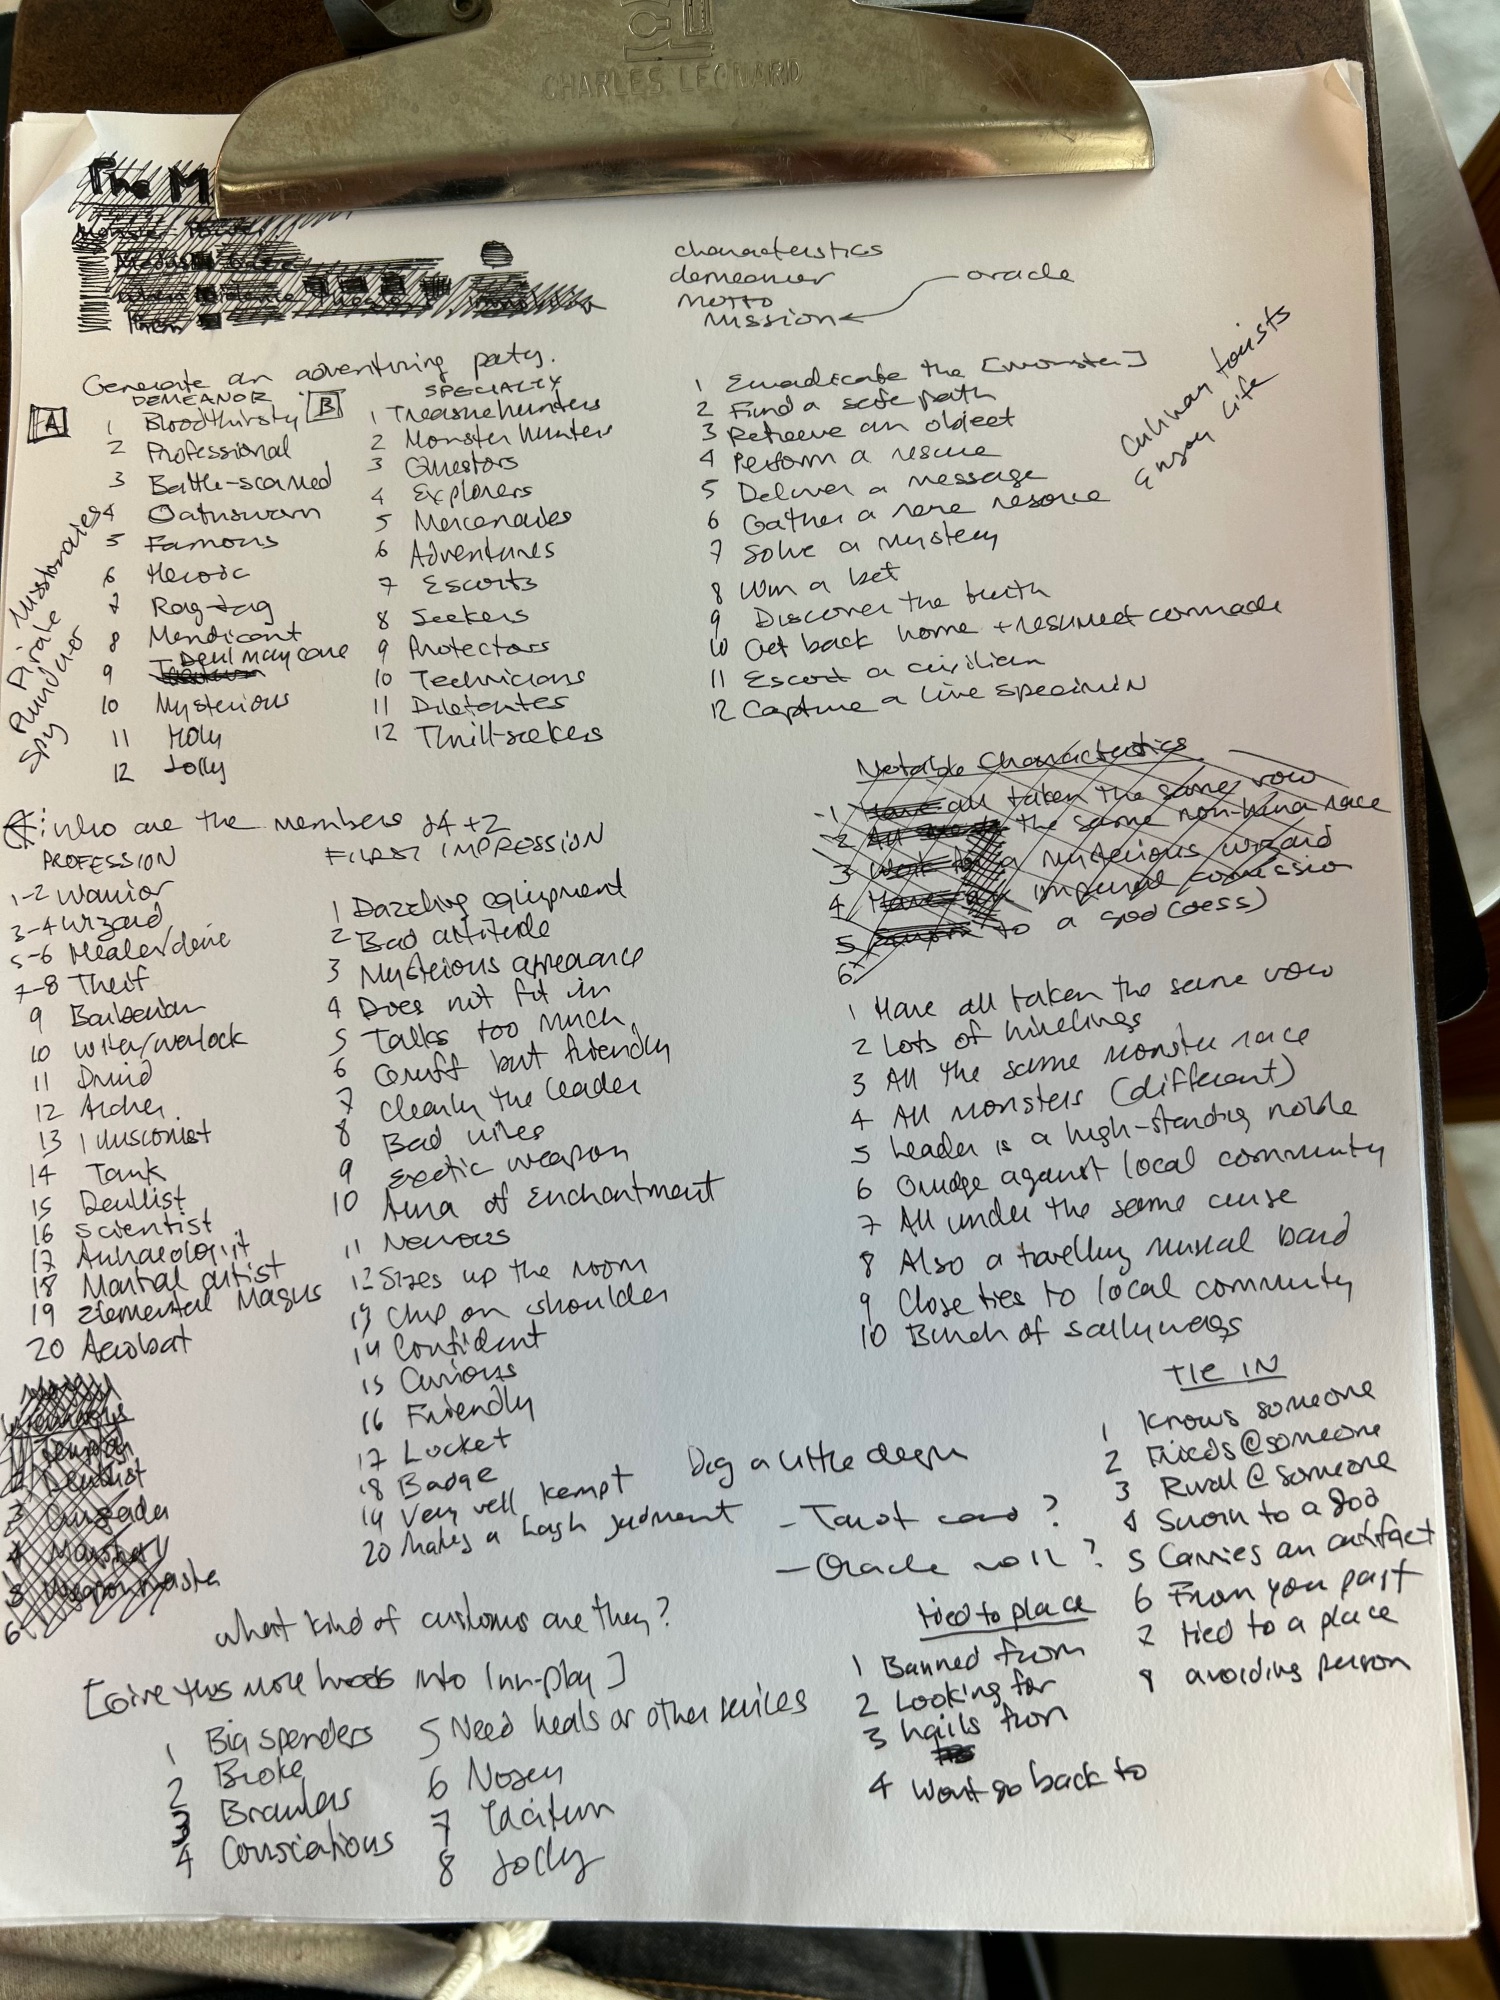 CHARLES LEONARD
The M
characteristics
demeanor
motto
mission
oracle
Generate an adventuring party.
A
DEMEANOR
1 Bloodthirsty
2 Professional
3 Battle-scarred
4 Oathsworn
5 Famous
6 Heroic
7 Rag-tag
8 Mendicant
9 Devil may care
10 Mysterious
11 Holy
12 Jolly
Missionaries
Pirate
Plunderer
Spy
B
SPECIALTY
1 Treasure hunters
2 Monster hunters
3 Questors
4 Explorers
5 Mercenaries
6 Adventurers
7 Escorts
8 Seekers
9 Protectors
10 Technicians
11 Diletantes
12 Thrill-seekers
1 Eradicate the [monster]
2 Find a safe path
3 Retrieve an object
4 Perform a rescue
5 Deliver a message
6 Gather a rare resource
7 Solve a mystery
8 Win a bet
9 Discover the truth
10 Get back home + resurrect comrade
11 Escort a civilian
12 Capture a live specimin
Culinary tourists
Enjoy life
who are the members d4+2
PROFESSION
1-2 Warrior
3-4 Wizard
5-6 Healer/cleric
7-8 Theif
9 Barbarian
10 Witch/warlock
11 Druid
12 Archer
13 Illusionist
14 Tank
15 Duellist
16 Scientist
17 Archaeologist
18 Martial artist
19 Elemental Magus
20 Acrobat
FIRST IMPRESSION
1 Dazzling equipment
2 Bad attitude
3 Mysterious appearance
4 Does not fit in
5 Talks too much
6 Gruff but friendly
7 Clearly the leader
8 Bad vibes
9 Exotic weapon
10 Aura of Enchantment
11 Nervous
12 Sizes up the room
13 Chip on shoulder
14 Confident
15 Curious
16 Friendly
17 Locket
18 Badge
19 Very well kempt
20 Makes a harsh judment
Notable Characteristics
1 Have all taken the same vow
2 the same non-human race
3 a mysterious wizard
4 imperial comission
5 to a god(dess)
6
1 Have all taken the same vow
2 Lots of hirelings
3 All the same monster race
4 All monsters (different)
5 Leader is a high-standing noble
6 Grudge against local community
7 All under the same curse
8 Also a travelling musical band
9 Close ties to local community
10 Bunch of scallywags
Duellist
Weapon master
6
Dig a little deeper
- Tarot card?
- Oracle roll?
TIE IN
1 Knows someone
2 Frieds @ someone
3 Rival @ someone
4 Sworn to a god
5 Carries an artifact
6 From your past
7 tied to a place
8 avoiding person
tied to place
1 Banned from
2 Looking for
3 hails from
4 Wont go back to
What kind of customs are they?
[Give this more hooks into Inn-play]
1 Big spenders
2 Broke
3 Brawlers
4 Consciations
5 Need heals or other services
6 Nosey
7 Taciturn
8 Jolly